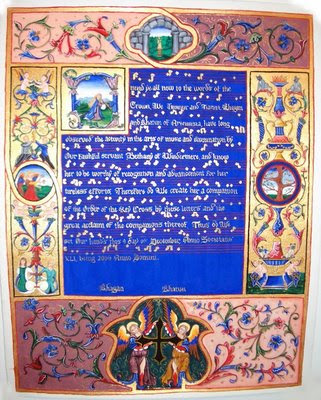 mind ye all now to the words of the
Crown. We Thorgar and
and of Artemisia have long
observed the activity in the arts of music and illumination by
Our faithful servant Bethany of Windermere, and know
her to be worthy of recognition and advancement for her
tireless efforts. Therefore do We create her a companion
of the Order of the Cross by these letters and the
great acclaim of the companions thereof. Thus do We
set Our hands this day of December Anno Societatis
XLI, being 2006 Anno Domini.